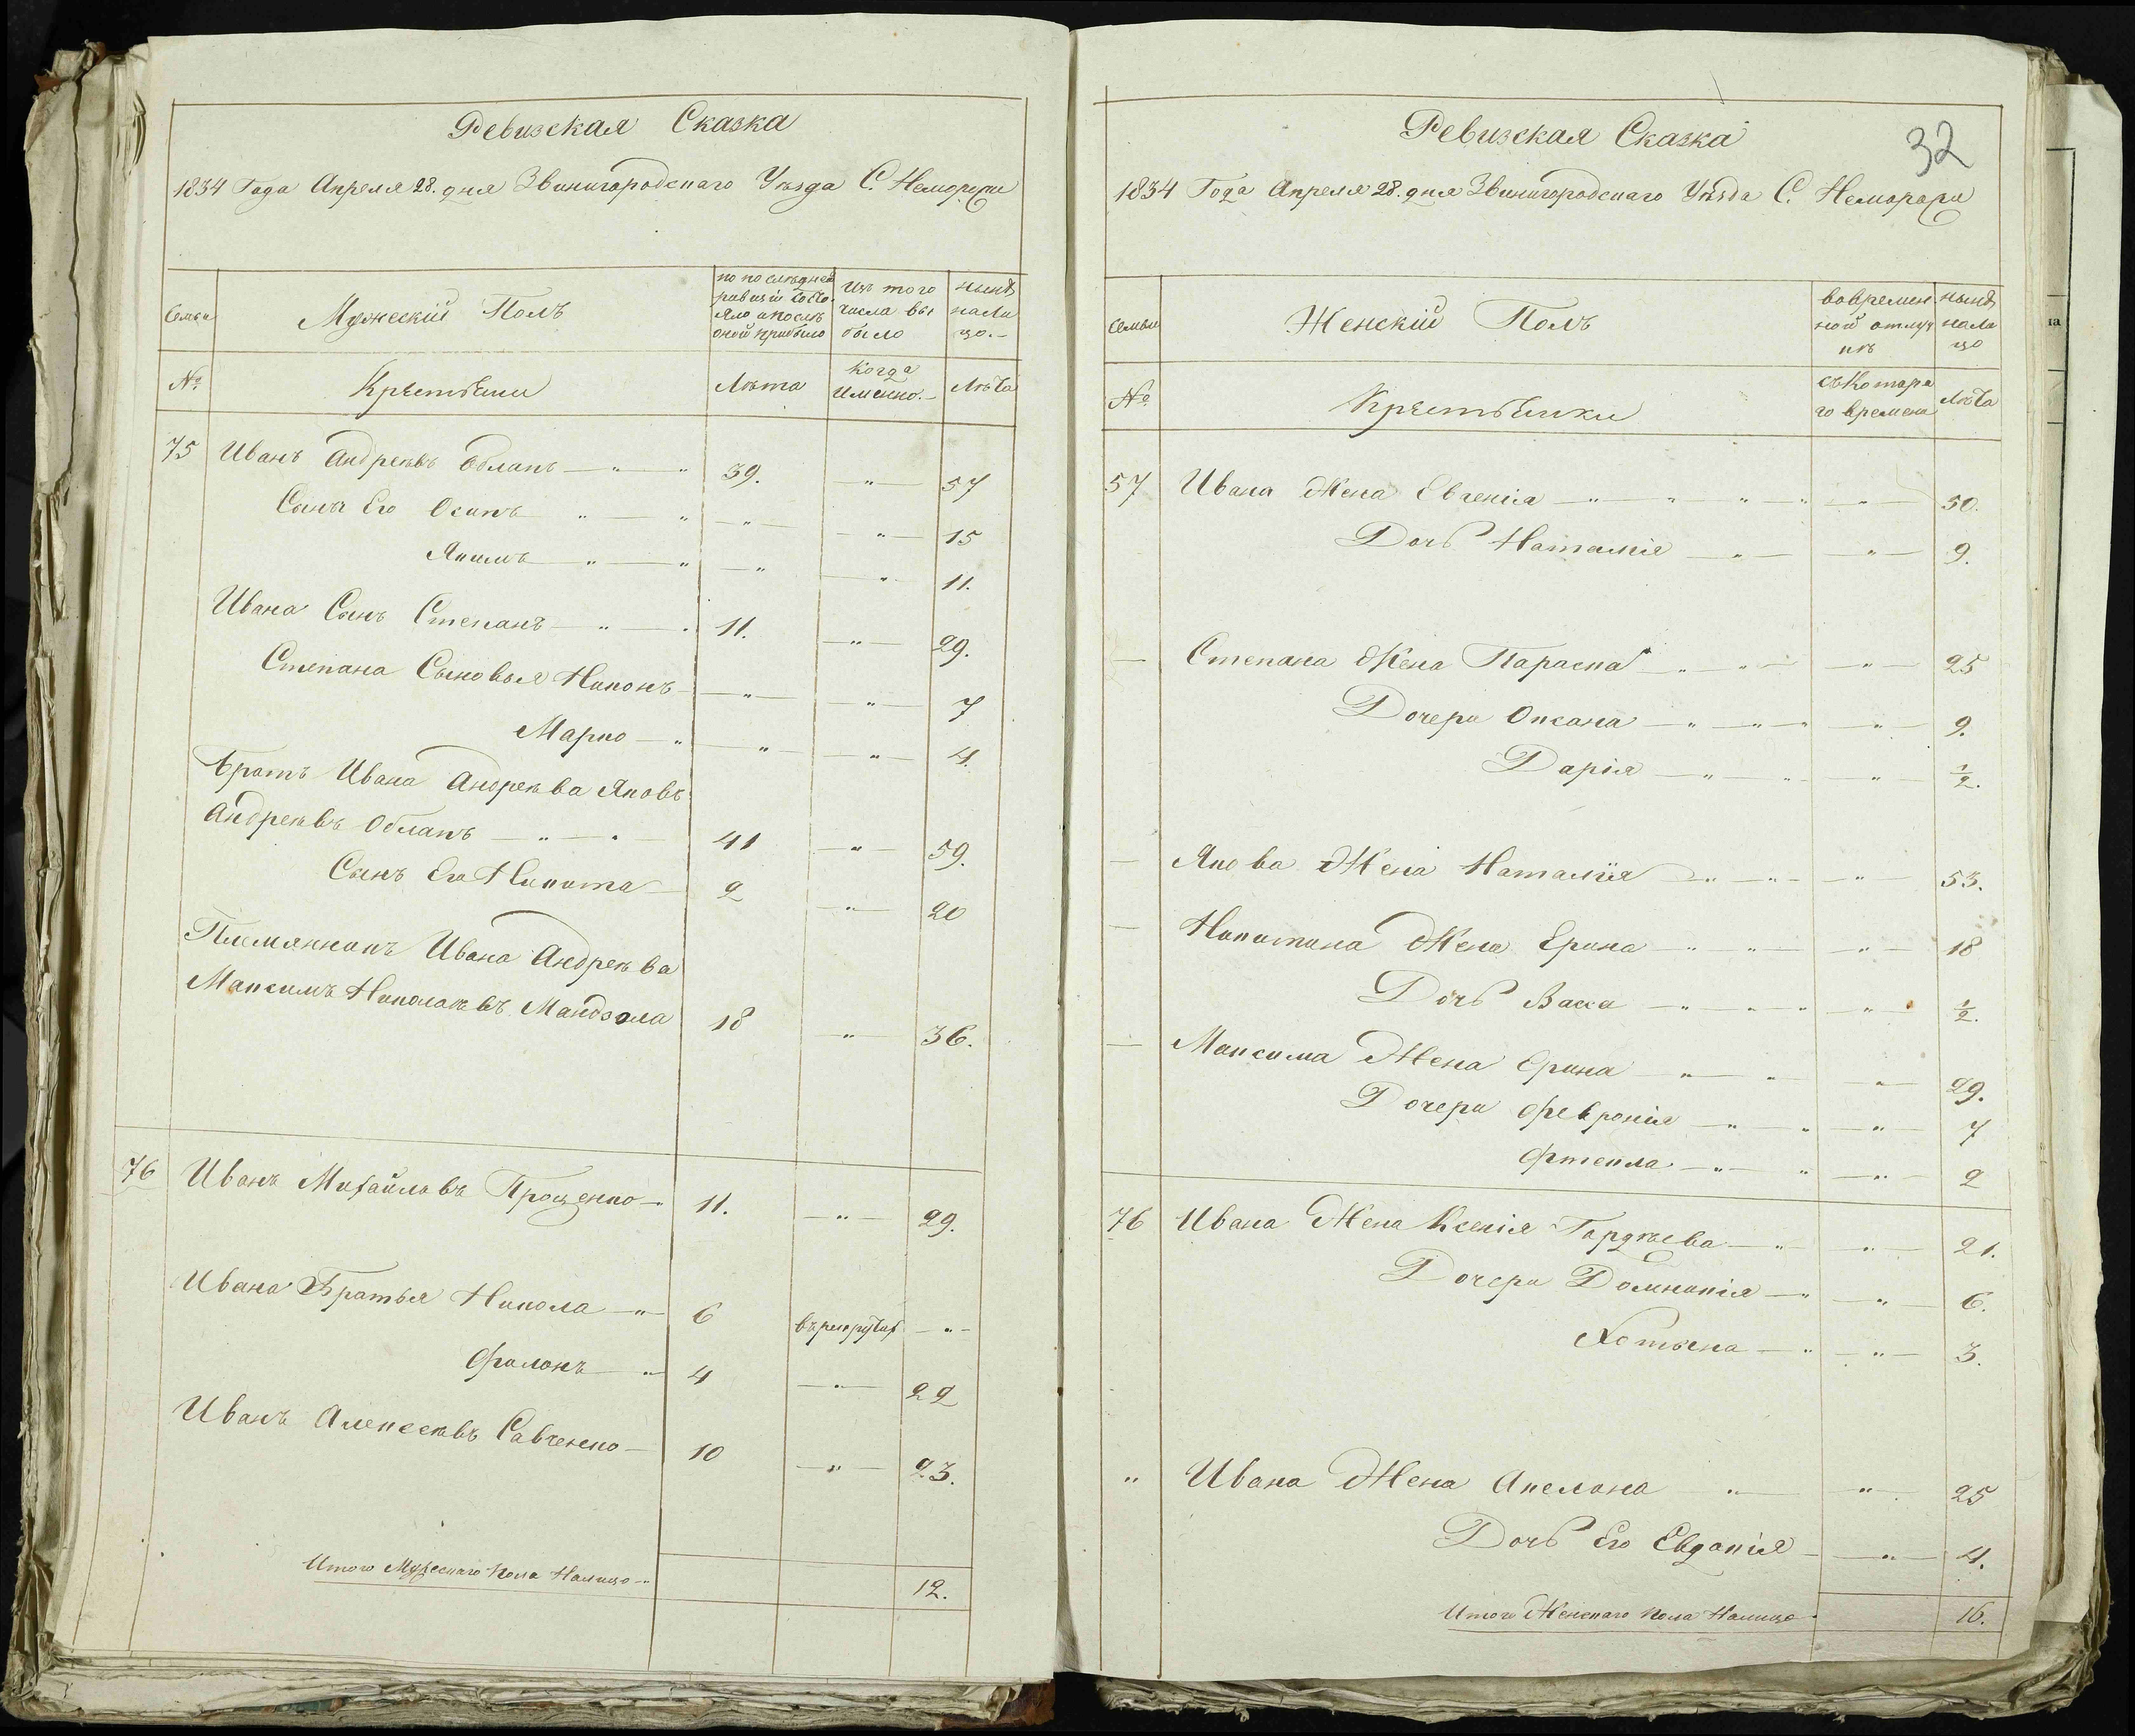 Ревизская Сказка
1834 Года Апреля 28. дня Звинигородскаго Уѣзда С. Неморожи
Семьи
Мужескій Полъ
по послѣдней ревизіи состояло и послѣ оной прибыло
изъ того числа выбыло
нынѣ налицо.
№
Крестьяни
Лѣта
Когда имѣнно.
Лѣта
75 Иванъ Андреѣвъ Облапъ — " — " 39. — " — 57
Сынъ Его Осипъ " — " — " — — " — 15
Якимъ — " — " — " — " — 11.
Ивана Сынъ Степанъ — " — 11. — " — 29.
Степана Сыновья Никонъ — " — — " — 7
Марко — " — " — — " — 4.
Братъ Ивана Андреѣва Яковъ
Андреѣвъ Облапъ — " — " 41 — " — 59.
Сынъ Его Никита — 2 — " — 20
Племянникъ Ивана Андреѣва
Максимъ Николаѣвъ Мандзола 18 — " — 36.
76 Иванъ Михайловъ Проценко — 11. — " — 29.
Ивана Братья Никола — " — 6 в рекрутах — " —
Филонъ — " — 4 — " — 22
Иванъ Алексеѣвъ Савченко — 10 — " — 23.
Итого Мужескаго пола Налицо — " 12.
Ревизская Сказка
32
1834 Года Апреля 28. дня Звинигородскаго Уѣзда С. Неморожи
Семьи
Женскій Полъ
вовремянной отлучкѣ
нынѣ налицо
№
Крестьянки
съ котораго времена
Лѣта
57 Ивана Жена Евгенія — " — " " " — " — 50.
Дочь Наталія — " — — " — 9.
— Степана Жена Параска — " — " — — " — 25
Дочери Оксана — " — " — " " — 9.
Дарія — " — " — " — 1/2.
— Якова Жена Наталія — " — " — — " — 53.
— Никитина Жена Ерина — " " — — " — 18
Дочь Васса — " — " — " — " — 1/2.
— Максима Жена Ерина — " — " — " — 29.
Дочери Февронія — " — " — " — 7
Фтекла — " — " — " — 2
76 Ивана Жена Ксенія Гордѣева — " — " — 21.
Дочери Домникія — " — " — 6.
Хотвена — " — " — 3.
" Ивана Жена Акелона " — — " — 25
Дочь Его Евдокія — — " — 4.
Итого Женскаго пола Налицо 16.